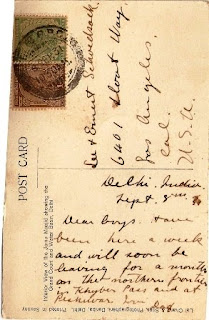 POST CARD
Lee & Ernest Schwedrock
6401 Sloout Way
Los Angeles.
Cal.
U.S.A.
Delhi, India
Sept. 8
Dear boys. Have
been here a week
and will soon be
leaving for a month
on the northern frontier
Khyber Pass and at
Dad
View of the Jama Masjid showing the
Grand Court and Water Basin, Delhi
Photographers, Dariba, Delhi. Printed Saxony